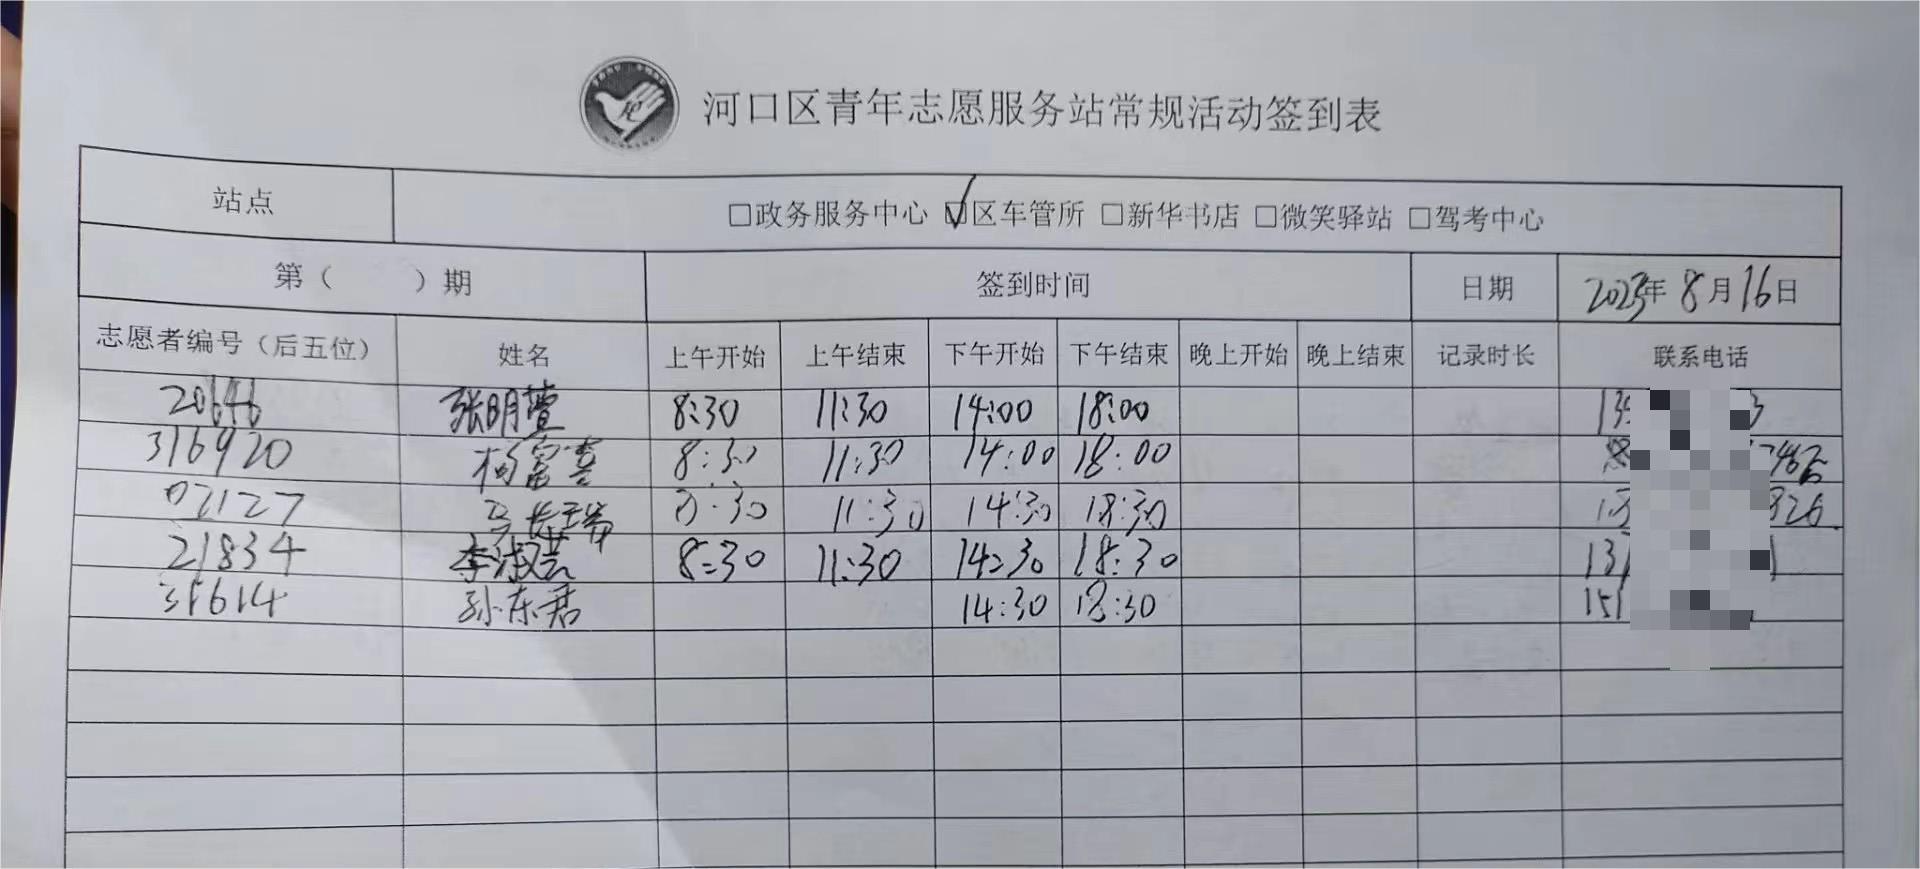 河口区青年志愿服务站常规活动签到表
站点 □政务服务中心 ☑区车管所 □新华书店 □微笑驿站 □驾考中心
第（ ）期 签到时间 日期 2023年8月16日
志愿者编号（后五位） 姓名 上午开始 上午结束 下午开始 下午结束 晚上开始 晚上结束 记录时长 联系电话
20646 张明萱 8:30 11:30 14:00 18:00
316920 杨富喜 8:30 11:30 14:00 18:00
02127 8:30 11:30 14:30 18:30
21834 李淑芸 8:30 11:30 14:30 18:30
孙东君 14:30 18:30